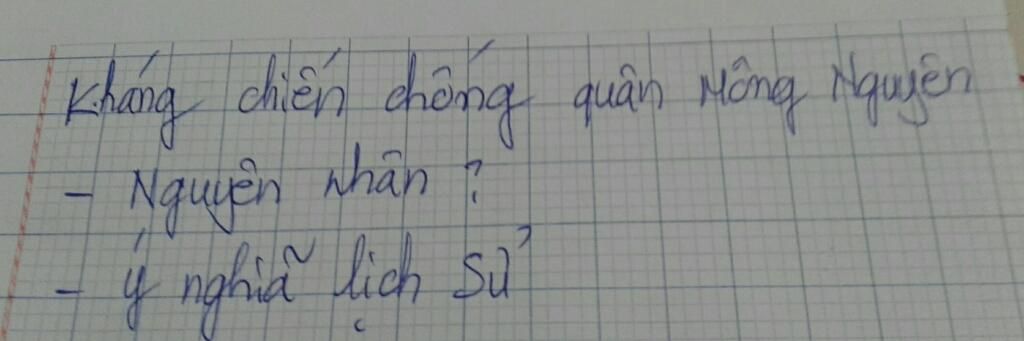 Kháng chiến chống quân Mông Nguyên
- Nguyên nhân ?
- ý nghĩa lịch sử